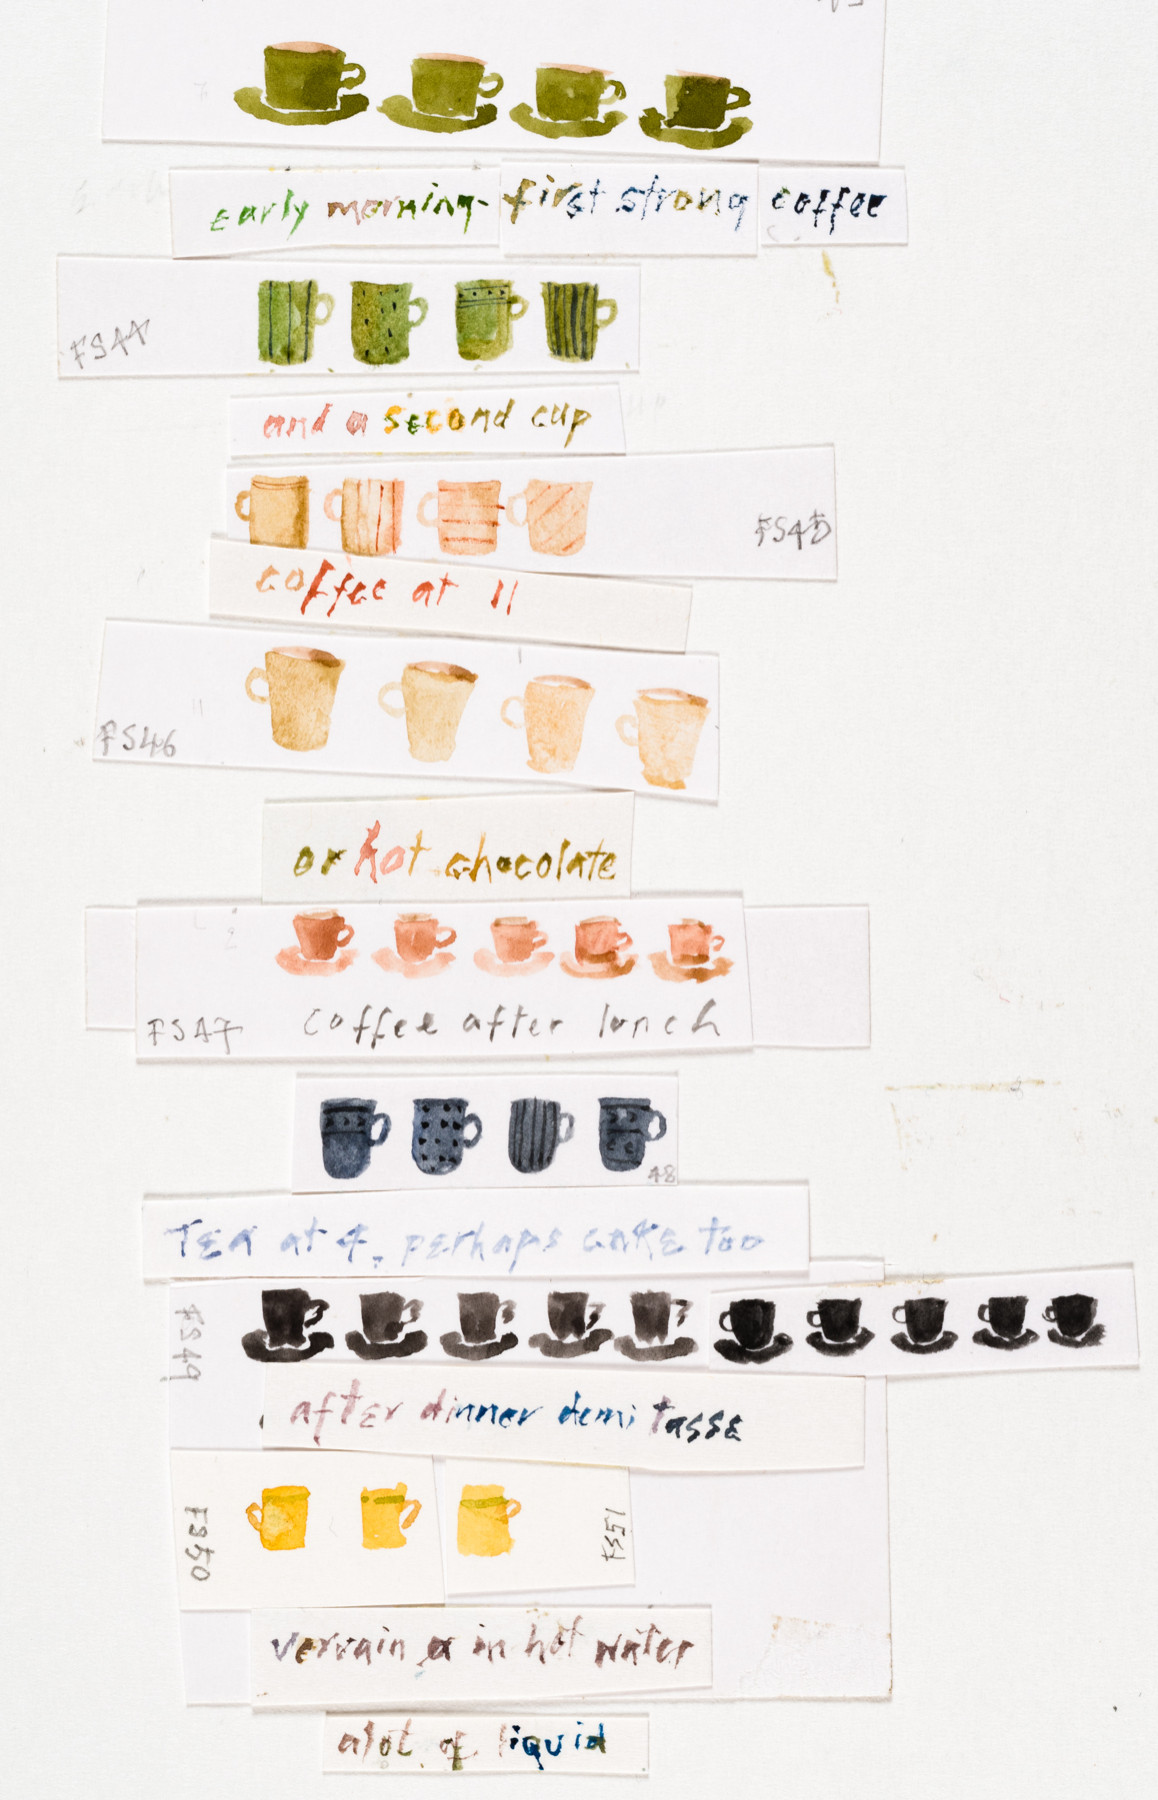 early morning- first strong coffee
FS44
and a second cup
FS45
coffee at 11
FS46
or hot chocolate
coffee after lunch
FS47
48
TEA at 4, perhaps cake too
FS49
after dinner demi tasse
FS50
FS51
vervain in hot water
alot of liquid